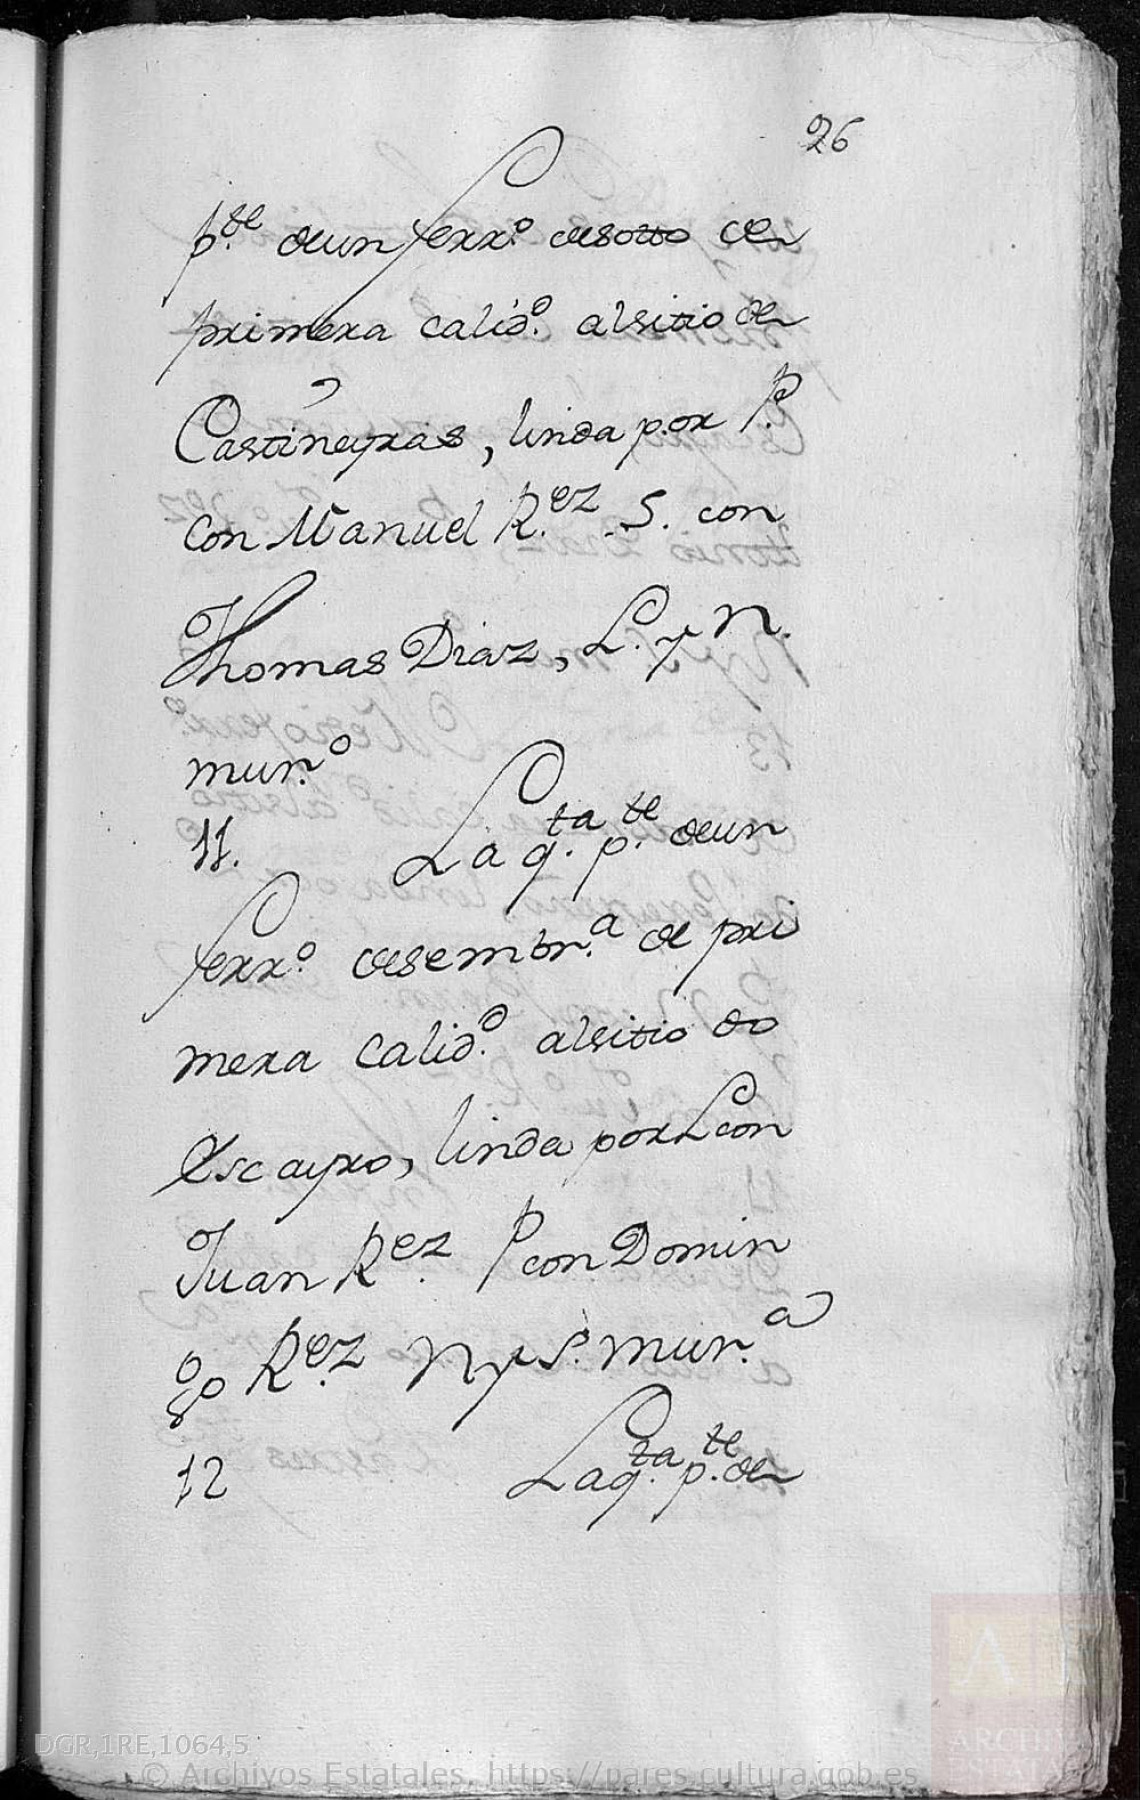 26
p.te de un ferr.o de sotto de
primera calid.d al sitio de
Castineyras, linda por P.
con Manuel R.ez S. con
Thomas Diaz, L. y N.
mur.o
11. La q.ta p.te de un
ferr.o de sembr.a de pri
mera calid.d al sitio do
Escayro, linda por L con
Juan R.ez P con Domin
go R.ez N y S. mur.a
12 La q.ta p.te de
DGR,1RE,1064,5
© Archivos Estatales, https://pares.cultura.gob.es